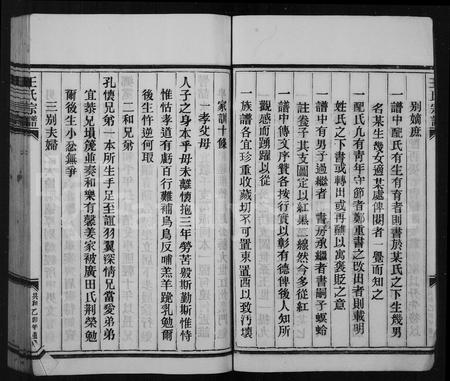 別嫡庶
一譜中配氏有生有育者則書於某氏之下生幾男
名某生幾女適某處俾閱者一覽而知之
一譜中配氏凡有靑年守節者鄭重書之改出者則載明
姓氏之下書或轉出或再醮以寓褒貶之意
一譜中有男子過繼者書承繼者書嗣子螟蛉
註養子其支圖定以紅黑二線然今多從紅
一譜中傳文序贊各按行實以彰有德俾後人知所
觀感而踴躍以從
一族譜各宜珍重收藏切不可置東置西以致汚壞
家訓十條
一孝父母
人子之身本乎母未離懷抱三年勞苦毅斯惟恃
惟怙孝道有虧百行難補烏鳥反哺羔羊跪乳勉爾
後生忤逆何取
二和兄弟
孔懷兄弟一本所生手足至誼羽翼深情兄當愛弟弟
宜恭兄塤篪並奏和樂有馨姜家被廣田氏荆榮勉
爾後生小忿無爭
三別夫婦
王氏宗譜